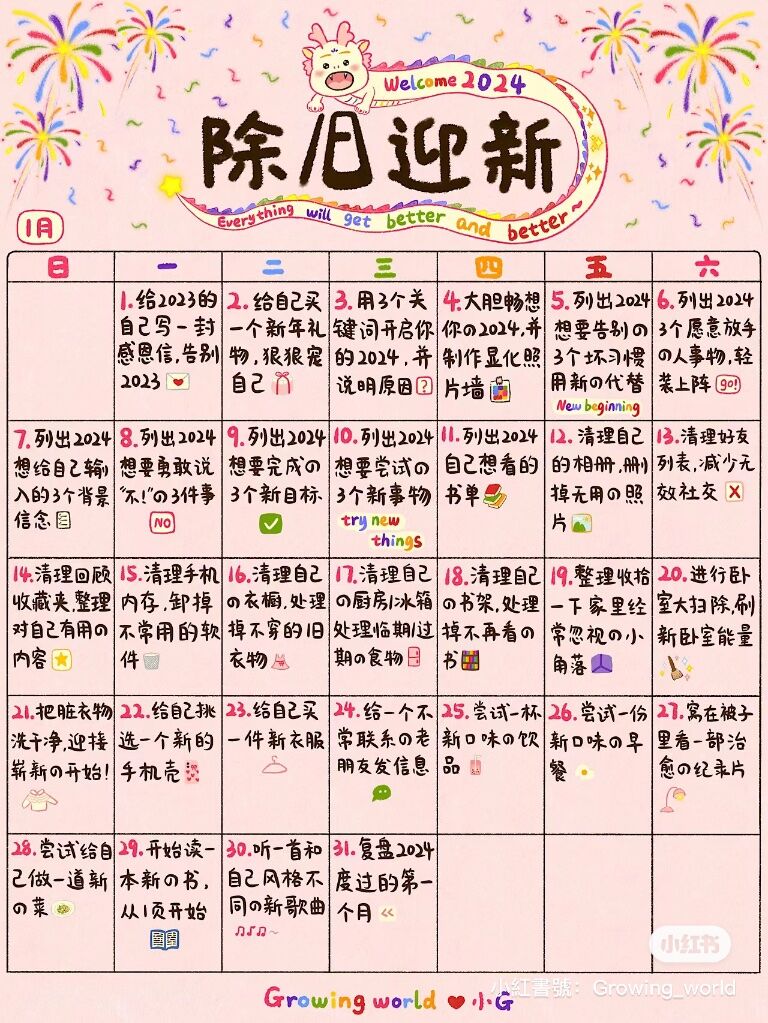 Welcome 2024
除旧迎新
Everything will get better and better~
1月
日 一 二 三 四 五 六
1.给2023的
自己写一封
感恩信,告别
2023
2.给自己买
一个新年礼
物,狠狠宠
自己
3.用3个关
键词开启你
的2024,并
说明原因?
4.大胆畅想
你の2024,并
制作显化照
片墙
5.列出2024
想要告别の
3个坏习惯
用新の代替
New beginning
6.列出2024
3个愿意放手
の人事物,轻
装上阵 go!
7.列出2024
想给自己输
入的3个背景
信念
8.列出2024
想要勇敢说
"不!"の3件事
NO
9.列出2024
想要完成の
3个新目标
10.列出2024
想要尝试の
3个新事物
try new
things
11.列出2024
自己想看的
书单
12.清理自己
的相册,删
掉无用の照
片
13.清理好友
列表,减少无
效社交
14.清理回顾
收藏夹,整理
对自己有用の
内容
15.清理手机
内存,卸掉
不常用的软
件
16.清理自己
の衣橱,处理
掉不穿的旧
衣物
17.清理自己
の厨房/冰箱
处理临期/过
期の食物
18.清理自己
の书架,处理
掉不再看の
书
19.整理收拾
一下家里经
常忽视の小
角落
20.进行卧
室大扫除,刷
新卧室能量
21.把脏衣物
洗干净,迎接
崭新の开始!
22.给自己挑
选一个新的
手机壳
23.给自己买
一件新衣服
24.给一个不
常联系の老
朋友发信息
25.尝试一杯
新口味の饮
品
26.尝试一份
新口味の早
餐
27.窝在被子
里看一部治
愈の纪录片
28.尝试给自
己做一道新
の菜
29.开始读一
本新の书,
从1页开始
30.听一首和
自己风格不
同の新歌曲
31.复盘2024
度过的第一
个月
小红书
小红書號：Growing_world
Growing world ❤小G